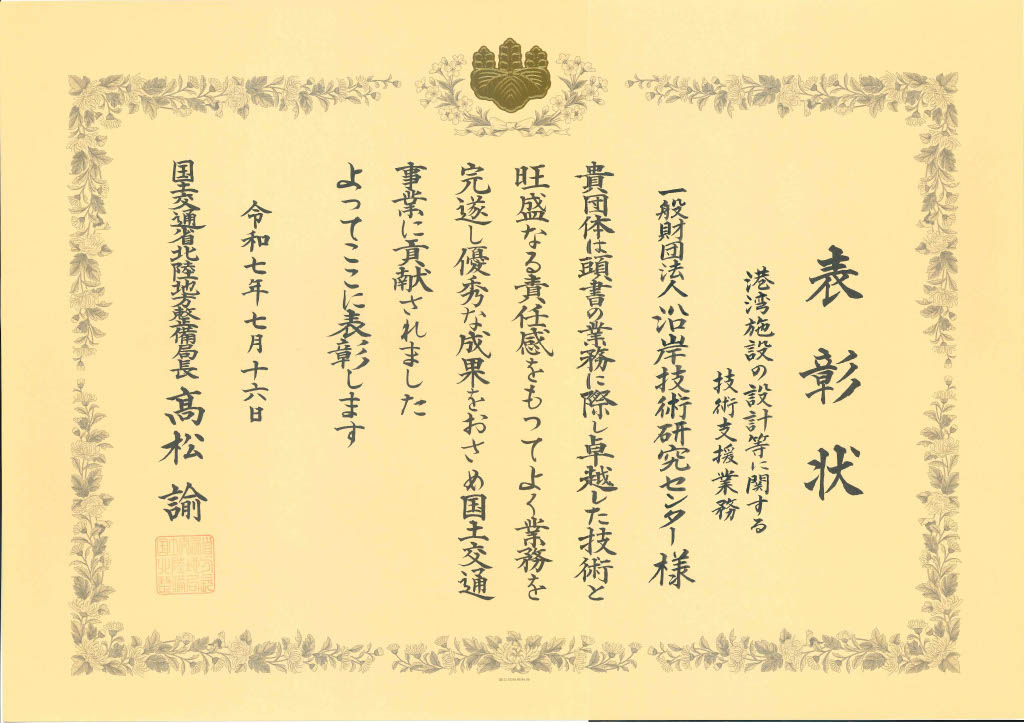 表彰状
港湾施設の設計等に関する
技術支援業務
一般財団法人 沿岸技術研究センター 様
貴団体は頭書の業務に際し卓越した技術と
旺盛なる責任感をもってよく業務を
完遂し優秀な成果をおさめ国土交通
事業に貢献されました
よってここに表彰します
令和七年七月十六日
国土交通省北陸地方整備局長 髙松 諭